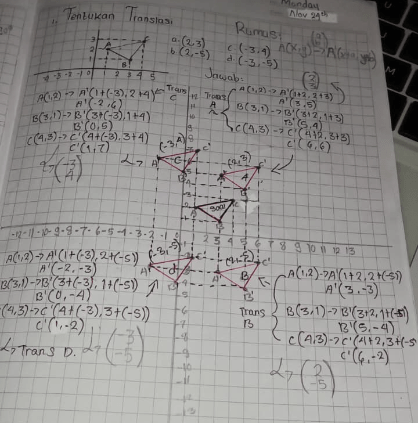 Monday
Nov 29th
1. Tentukan Translasi
a. (2,3)
b. (2,-5)
c. (-3,4)
d. (-3,-5)
Rumus:
Jawab:
A(1,2) -> A'(1+(-3), 2+4)
A'(-2,6)
B(3,1) -> B'(3+(-3), 1+4)
B'(0,5)
C(4,3) -> C'(4+(-3), 3+4)
C'(1,7)
Trans C
(-3 4)
Trans A
A(1,2) -> A'(1+2, 2+3)
A'(3,5)
B(3,1) -> B'(3+2, 1+3)
B'(5,4)
C(4,3) -> C'(4+2, 3+3)
C'(6,6)
-12 -11 -10 -9 -8 -7 -6 -5 -4 -3 -2 -1 0 1 2 3 4 5 6 7 8 9 10 11 12 13
A(1,2) -> A'(1+(-3), 2+(-5))
A'(-2,-3)
B(3,1) -> B'(3+(-3), 1+(-5))
B'(0,-4)
C(4,3) -> C'(4+(-3), 3+(-5))
C'(1,-2)
Trans D.
(-3 -5)
Trans B
A(1,2) -> A'(1+2, 2+(-5))
A'(3,-3)
B(3,1) -> B'(3+2, 1+(-5))
B'(5,-4)
C(4,3) -> C'(4+2, 3+(-5
C'(6,-2)
(2 -5)